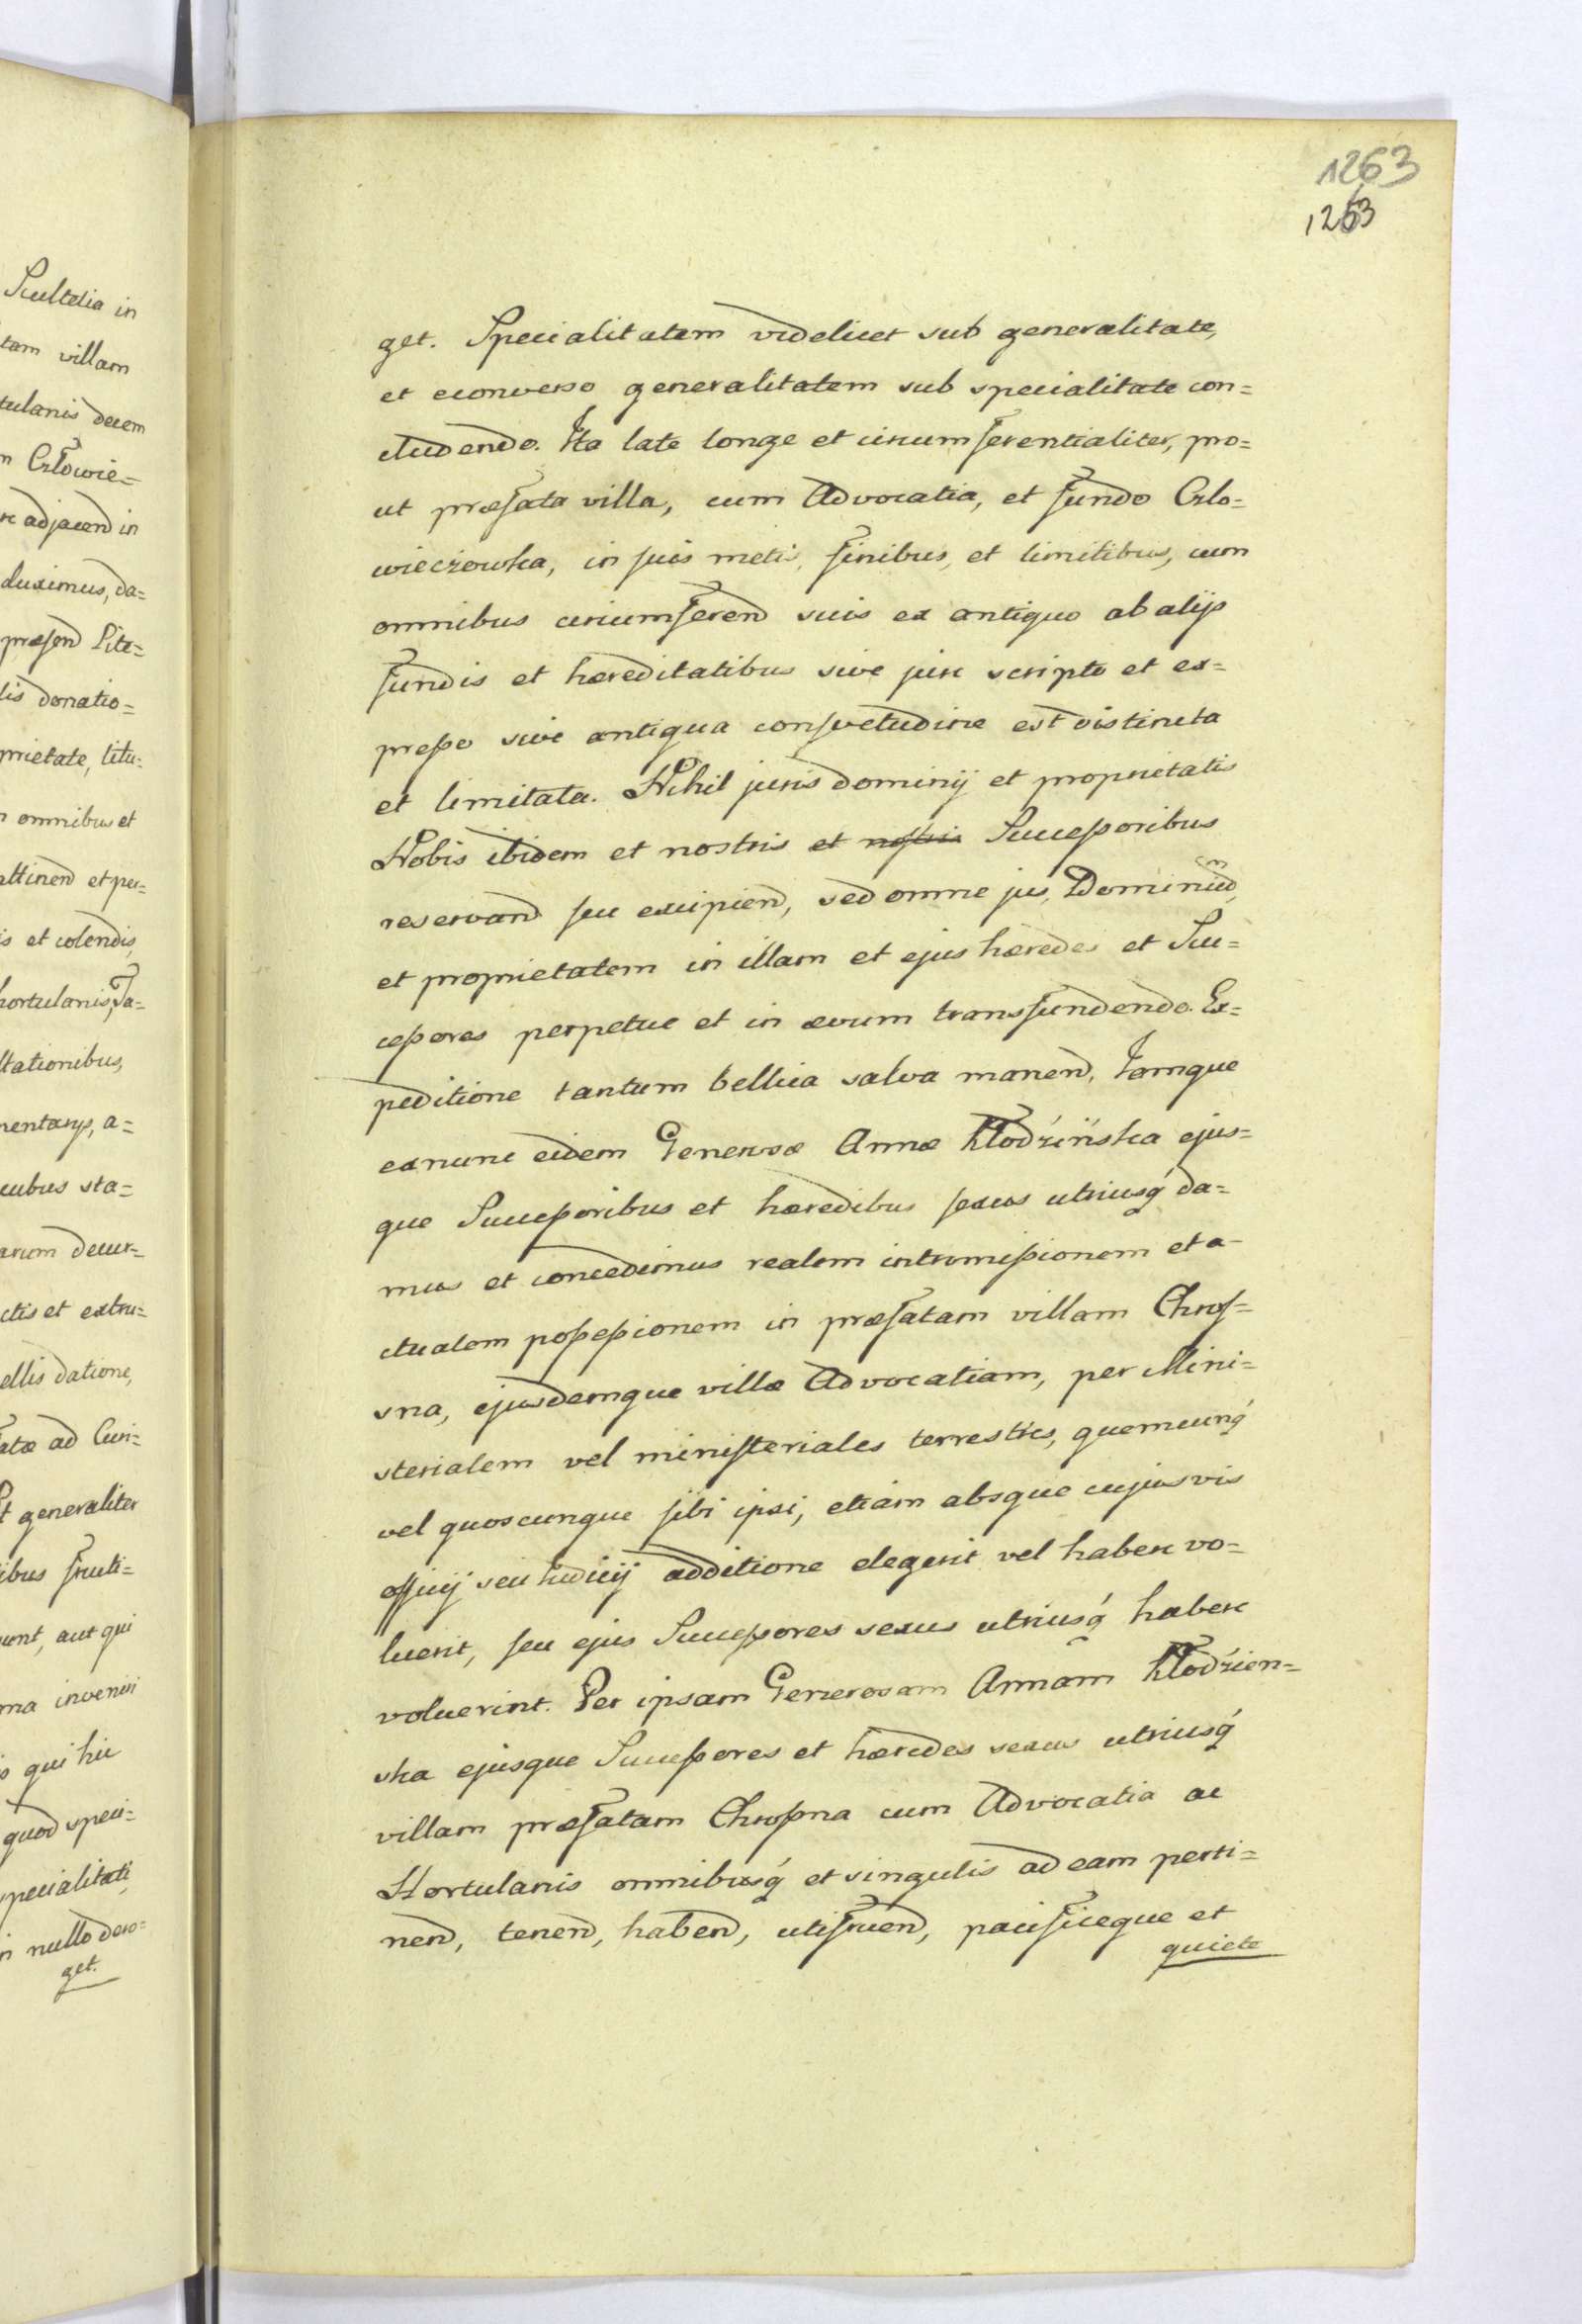 Scultetia in
tam villam
tulanis decem
m Człowie=
re adjacend in
duximus, da=
præsend Lite=
lis donatio=
prietate, titu=
omnibus et
attinend et per=
is et colendis,
hortulanis, Ta=
ltationibus,
mentarys, a=
cubus sta=
arum decur=
ctis et extru=
ellis datione,
fatæ ad Curi=
Et generaliter
ibus fructi=
runt, aut qui
ma inveniri
qui hic
quod speci=
specialitati
in nullo dero=
get.
1263
1263
get. Specialitatem videlicet sub generalitate,
et econverso generalitatem sub specialitate con=
cludendo. Ita late longe et circumferentialiter, pro=
ut præfata villa, cum Advocatia, et fundo Czło=
wieczowska, in suis metis, finibus, et limitibus, cum
omnibus circumferend suis ex antiquo ab alijs
fundis et hæreditatibus sive jure scripto et ex=
presso sive antiqua consvetudine est distincta
et limitata. Nihil juris dominij et proprietatis
Nobis ibidem et nostris et nostris Successoribus
reservand seu excipiend, sed omne jus, Dominiu͞m,
et proprietatem in illam et ejus hæredes et Suc=
cessores perpetue et in ævum transfundendo. Ex=
peditione tantum bellica salva manend, Jamque
exnunc eidem Generosæ Annæ Kłodzińska ejus=
que Successoribus et hæredibus sexus utriusq́ da=
mus et concedimus realem intromissionem et a-
ctualem possessionem in præfatam villam Chros=
sna, ejusdemque villæ Advocatiam, per Mini=
sterialem vel ministeriales terrestres, quemcunq́
vel quoscunque sibi ipsi, etiam absque cujusvis
officij seu Judicij additione elegerit vel habere vo=
luerit, seu ejus Successores sexus utriusq́ habere
voluerint. Per ipsam Generosam Annam Kłodzien=
ska ejusque Successores et hæredes sexus utriusq́
villam præfatam Chrossna cum Advocatia ac
Hortulanis omnibusq́ et singulis ad eam perti=
nend, tenend, habend, utifruend, pacificeque et
quiete